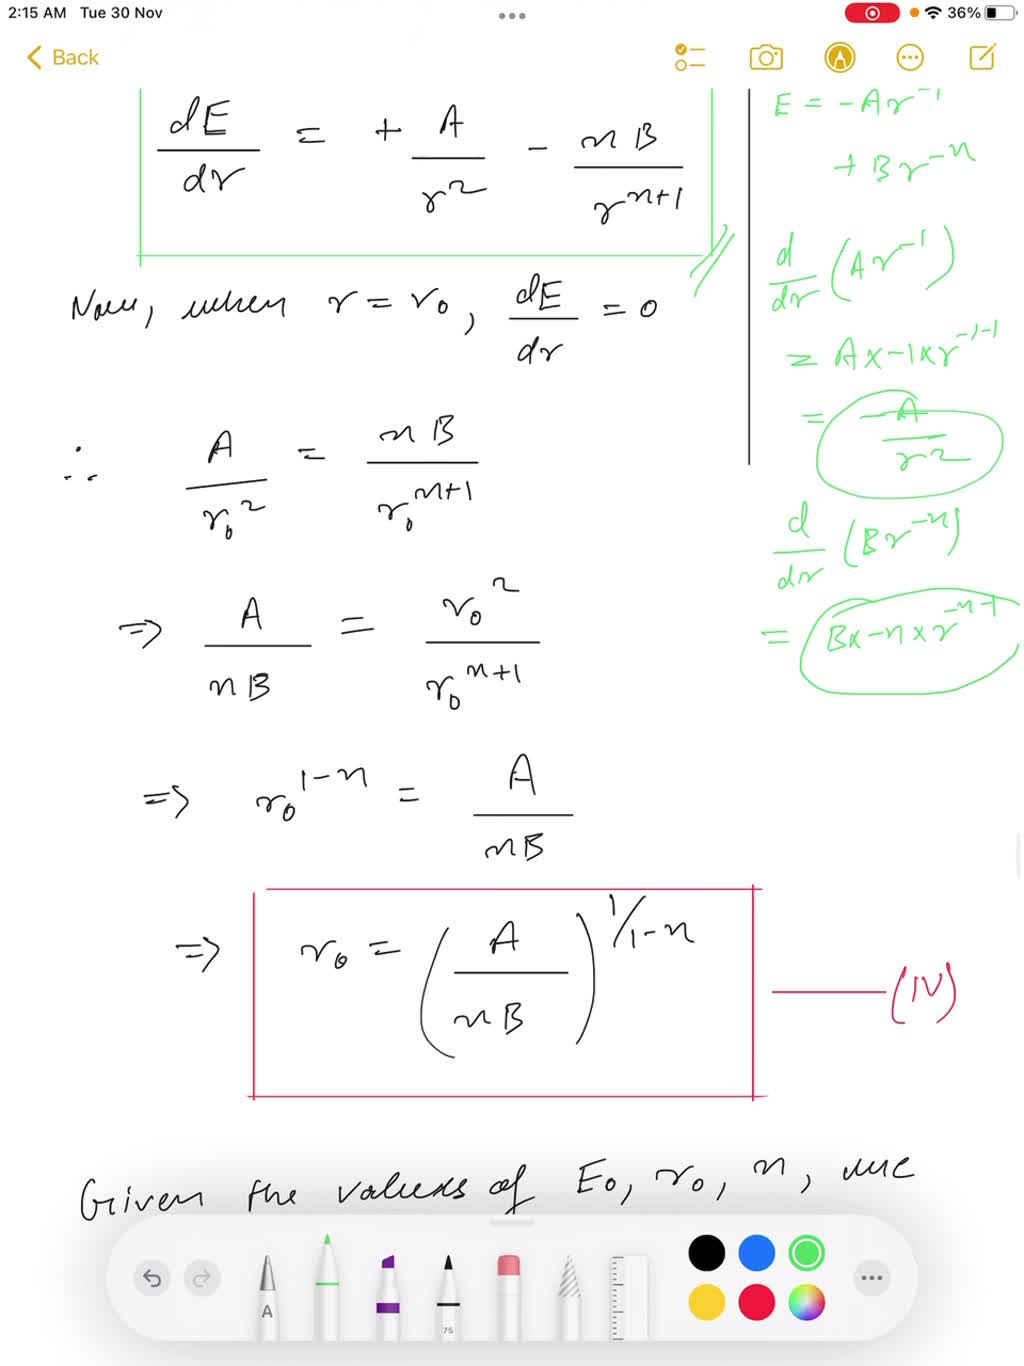 2:15 AM Tue 30 Nov
36%
Back
dE/dr = + A/r² - nB/r^(n+1)
Now, when r = r₀, dE/dr = 0
∴ A/r₀² = nB/r₀^(n+1)
⇒ A/nB = r₀²/r₀^(n+1)
⇒ r₀^(1-n) = A/nB
⇒ r₀ = (A/nB)^(1/1-n) — (IV)
Given the values of E₀, r₀, n, we
E = -Ar^-1
+ Br^-n
d/dr (Ar^-1)
= A×-1×r^-1-1
= -A/r²
d/dr (Br^-n)
= B×-n×r^-n-1
A
75